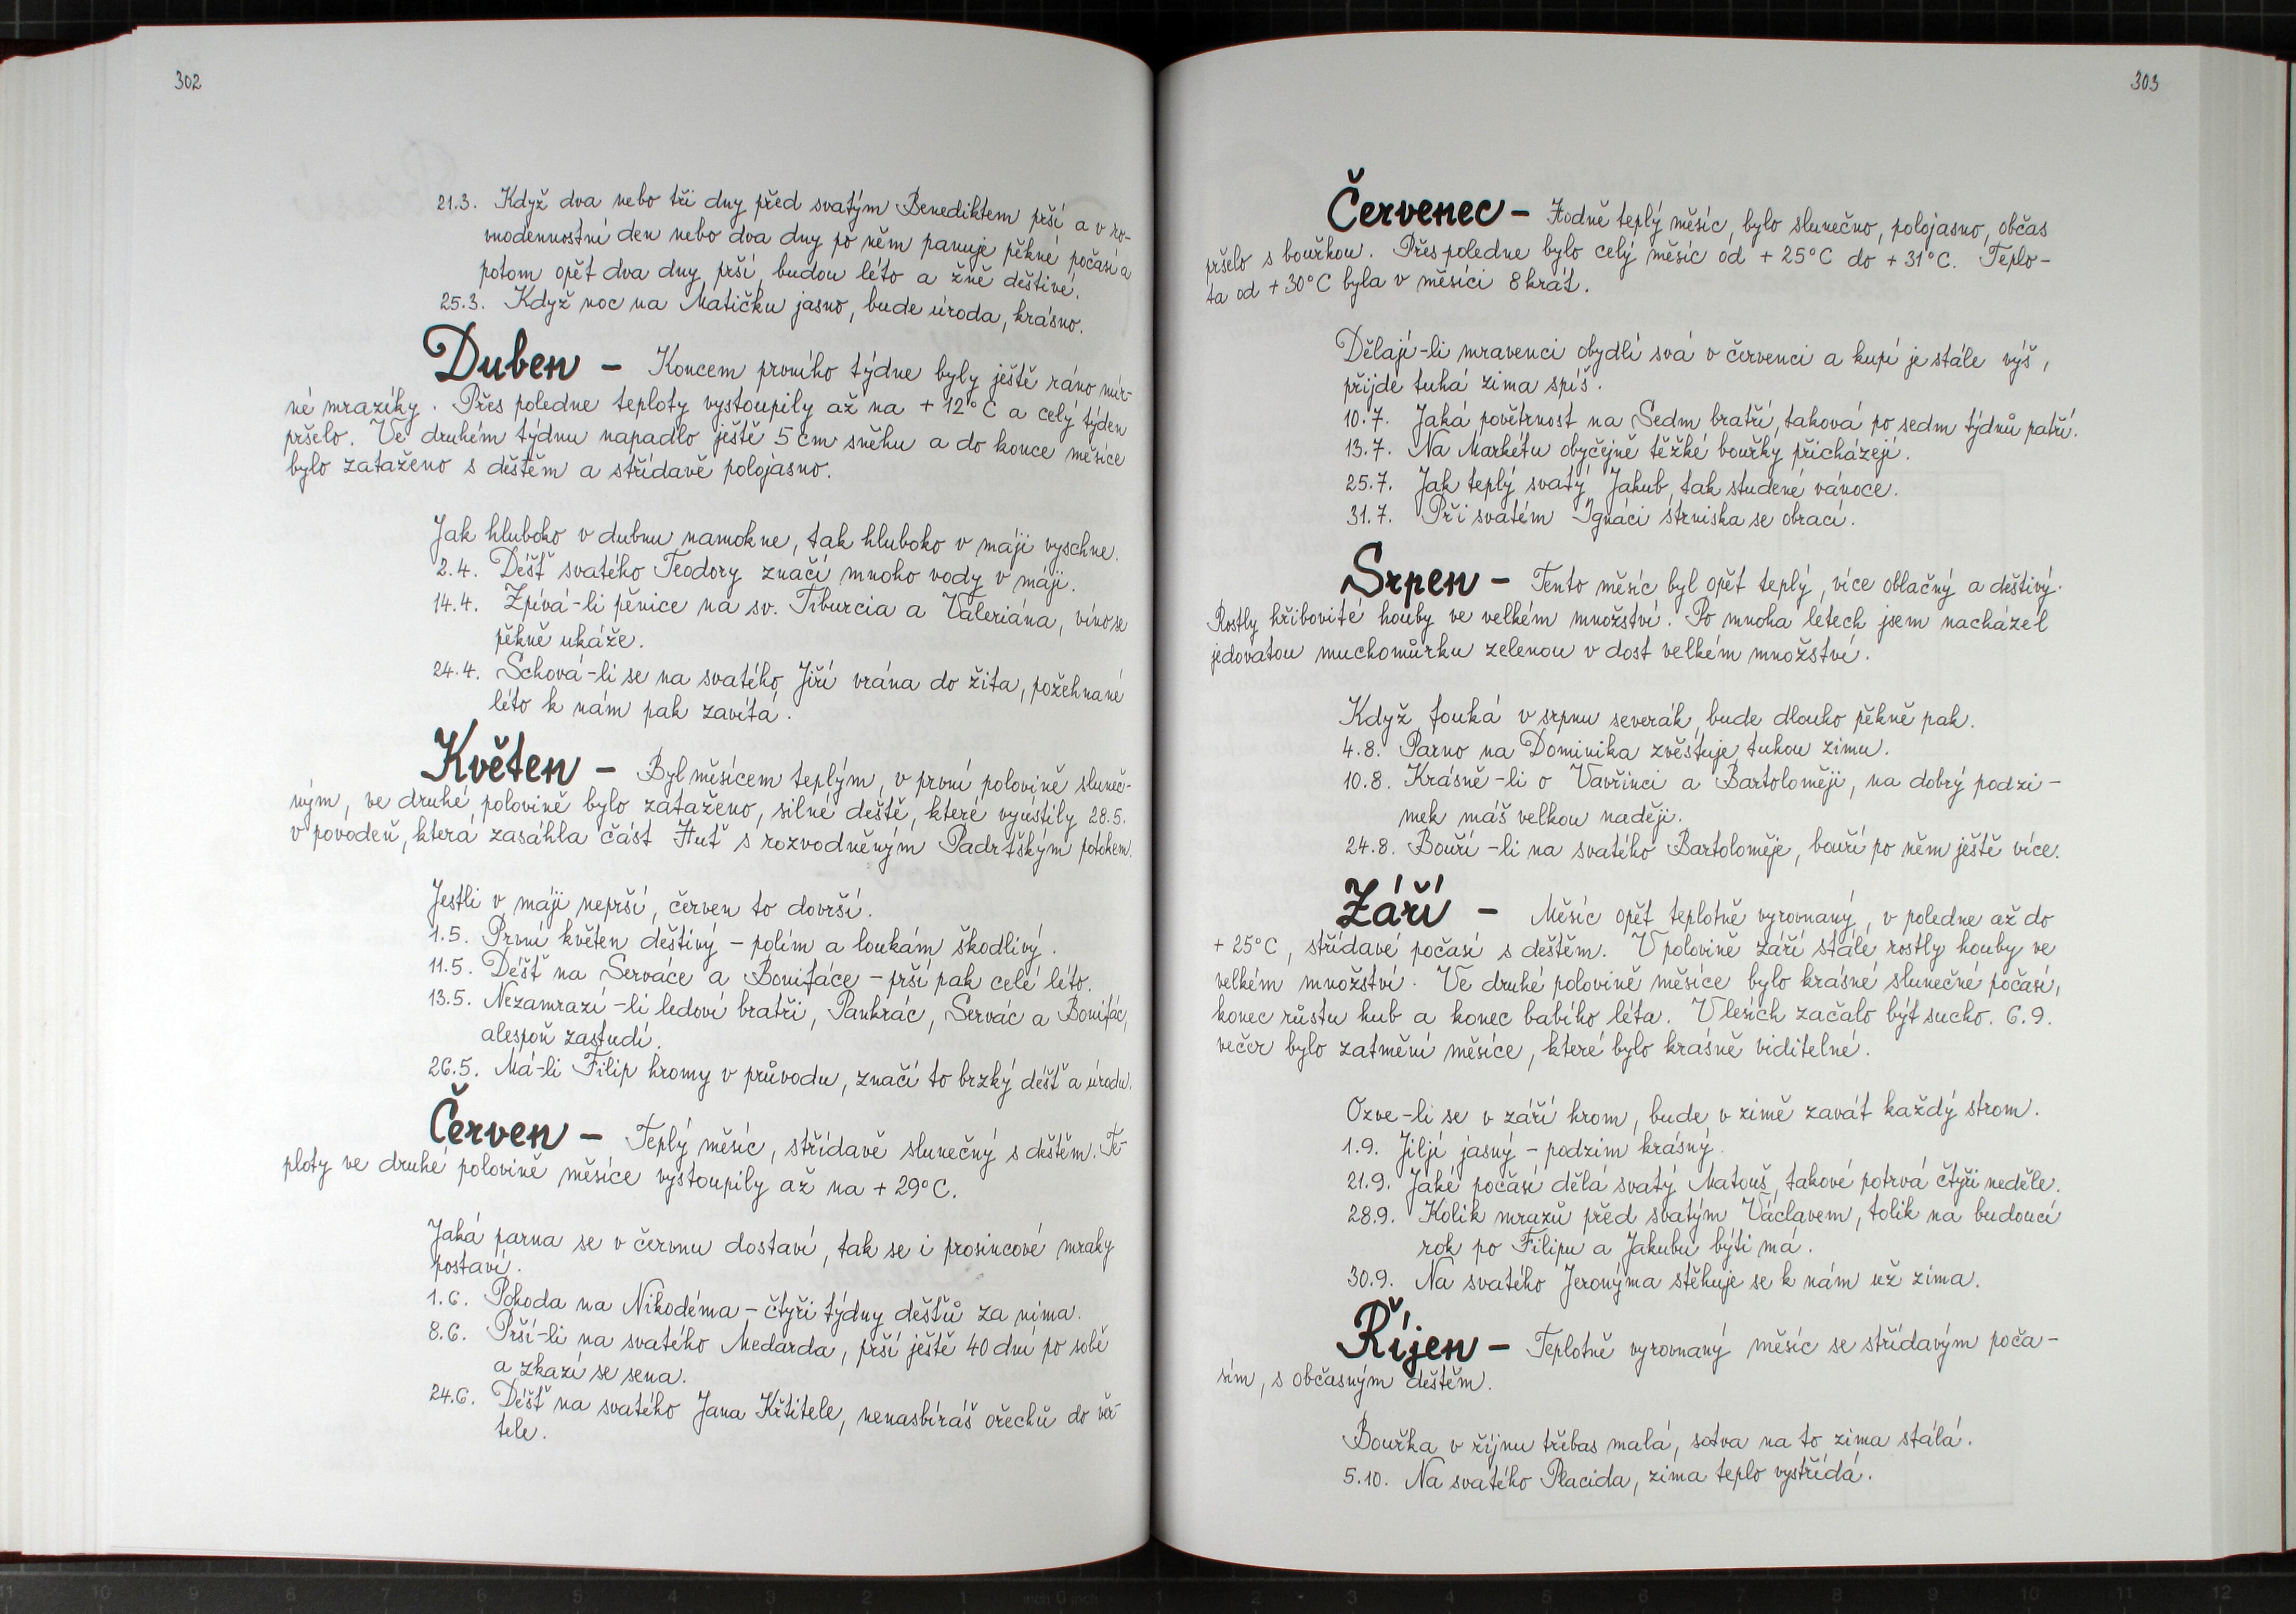 302
21.3. Když dva nebo tři dny před svatým Benediktem prší a v ro-
vnodennostní den nebo dva dny po něm panuje pěkné počasí a
potom opět dva dny prší, budou léto a žně deštivé.
25.3. Když noc na Matičku jasno, bude úroda, krásno.
Duben – Koncem prvního týdne byly ještě ráno mír-
né mrazíky. Přes poledne teploty vystoupily až na + 12°C a celý týden
pršelo. Ve druhém týdnu napadlo ještě 5 cm sněhu a do konce měsíce
bylo zataženo s deštěm a střídavě polojasno.
Jak hluboko v dubnu namokne, tak hluboko v máji vyschne.
2.4. Déšť svatého Teodory značí mnoho vody v máji.
14.4. Zpívá-li pěnice na sv. Tiburcia a Valeriána, víno se
pěkně ukáže.
24.4. Schová-li se na svatého Jiří vrána do žita, požehnané
léto k nám pak zavítá.
Květen – Byl měsícem teplým, v první polovině sluneč-
ným, ve druhé polovině bylo zataženo, silné deště, které vyústily 28.5.
v povodeň, která zasáhla část Huť s rozvodněným Padrťským potokem.
Jestli v máji neprší, červen to dovrší.
1.5. První květen deštivý – polím a loukám škodlivý.
11.5. Déšť na Serváce a Bonifáce – prší pak celé léto.
13.5. Nezamrazí-li ledoví bratři, Pankrác, Servác a Bonifác,
alespoň zastudí.
26.5. Má-li Filip hromy v průvodu, značí to brzký déšť a úrodu.
Červen – Teplý měsíc, střídavě slunečný s deštěm. Te-
ploty ve druhé polovině měsíce vystoupily až na + 29°C.
Jaká parna se v červnu dostaví, tak se i prosincové mraky
postaví.
1.6. Pohoda na Nikodéma – čtyři týdny dešťů za níma.
8.6. Prší-li na svatého Medarda, prší ještě 40 dní po sobě
a zkazí se sena.
24.6. Déšť na svatého Jana Křtitele, nenasbíráš ořechů do věr-
tele.
303
Červenec – Hodně teplý měsíc, bylo slunečno, polojasno, občas
pršelo s bouřkou. Přes poledne bylo celý měsíc od + 25°C do + 31°C. Teplo-
ta od + 30°C byla v měsíci 8 krát.
Dělají-li mravenci obydlí svá v červenci a kupí je stále výš,
přijde tuhá zima spíš.
10.7. Jaká povětrnost na Sedm bratří, taková po sedm týdnů patří.
13.7. Na Markétu obyčejně těžké bouřky přicházejí.
25.7. Jak teplý svatý Jakub, tak studené vánoce.
31.7. Při svatém Ignáci strniska se obrací.
Srpen – Tento měsíc byl opět teplý, více oblačný a deštivý.
Rostly hřibovité houby ve velkém množství. Po mnoha letech jsem nacházel
jedovatou muchomůrku zelenou v dost velkém množství.
Když fouká v srpnu severák, bude dlouho pěkně pak.
4.8. Parno na Dominika zvěstuje tuhou zimu.
10.8. Krásně-li o Vavřinci a Bartoloměji, na dobrý podzi-
mek máš velkou naději.
24.8. Bouří-li na svatého Bartoloměje, bouří po něm ještě více.
Září – Měsíc opět teplotně vyrovnaný, v poledne až do
+ 25°C, střídavé počasí s deštěm. V polovině září stále rostly houby ve
velkém množství. Ve druhé polovině měsíce bylo krásné slunečné počasí,
konec růstu hub a konec babího léta. V lesích začalo být sucho. 6.9.
večer bylo zatmění měsíce, které bylo krásně viditelné.
Ozve-li se v září hrom, bude v zimě zavát každý strom.
1.9. Jiljí jasný – podzim krásný.
21.9. Jaké počasí dělá svatý Matouš, takové potrvá čtyři neděle.
28.9. Kolik mrazů před svatým Václavem, tolik na budoucí
rok po Filipu a Jakubu býti má.
30.9. Na svatého Jeronýma stěhuje se k nám už zima.
Říjen – Teplotně vyrovnaný měsíc se střídavým poča-
sím, s občasným deštěm.
Bouřka v říjnu třebas malá, sotva na to zima stálá.
5.10. Na svatého Placida, zima teplo vystřídá.